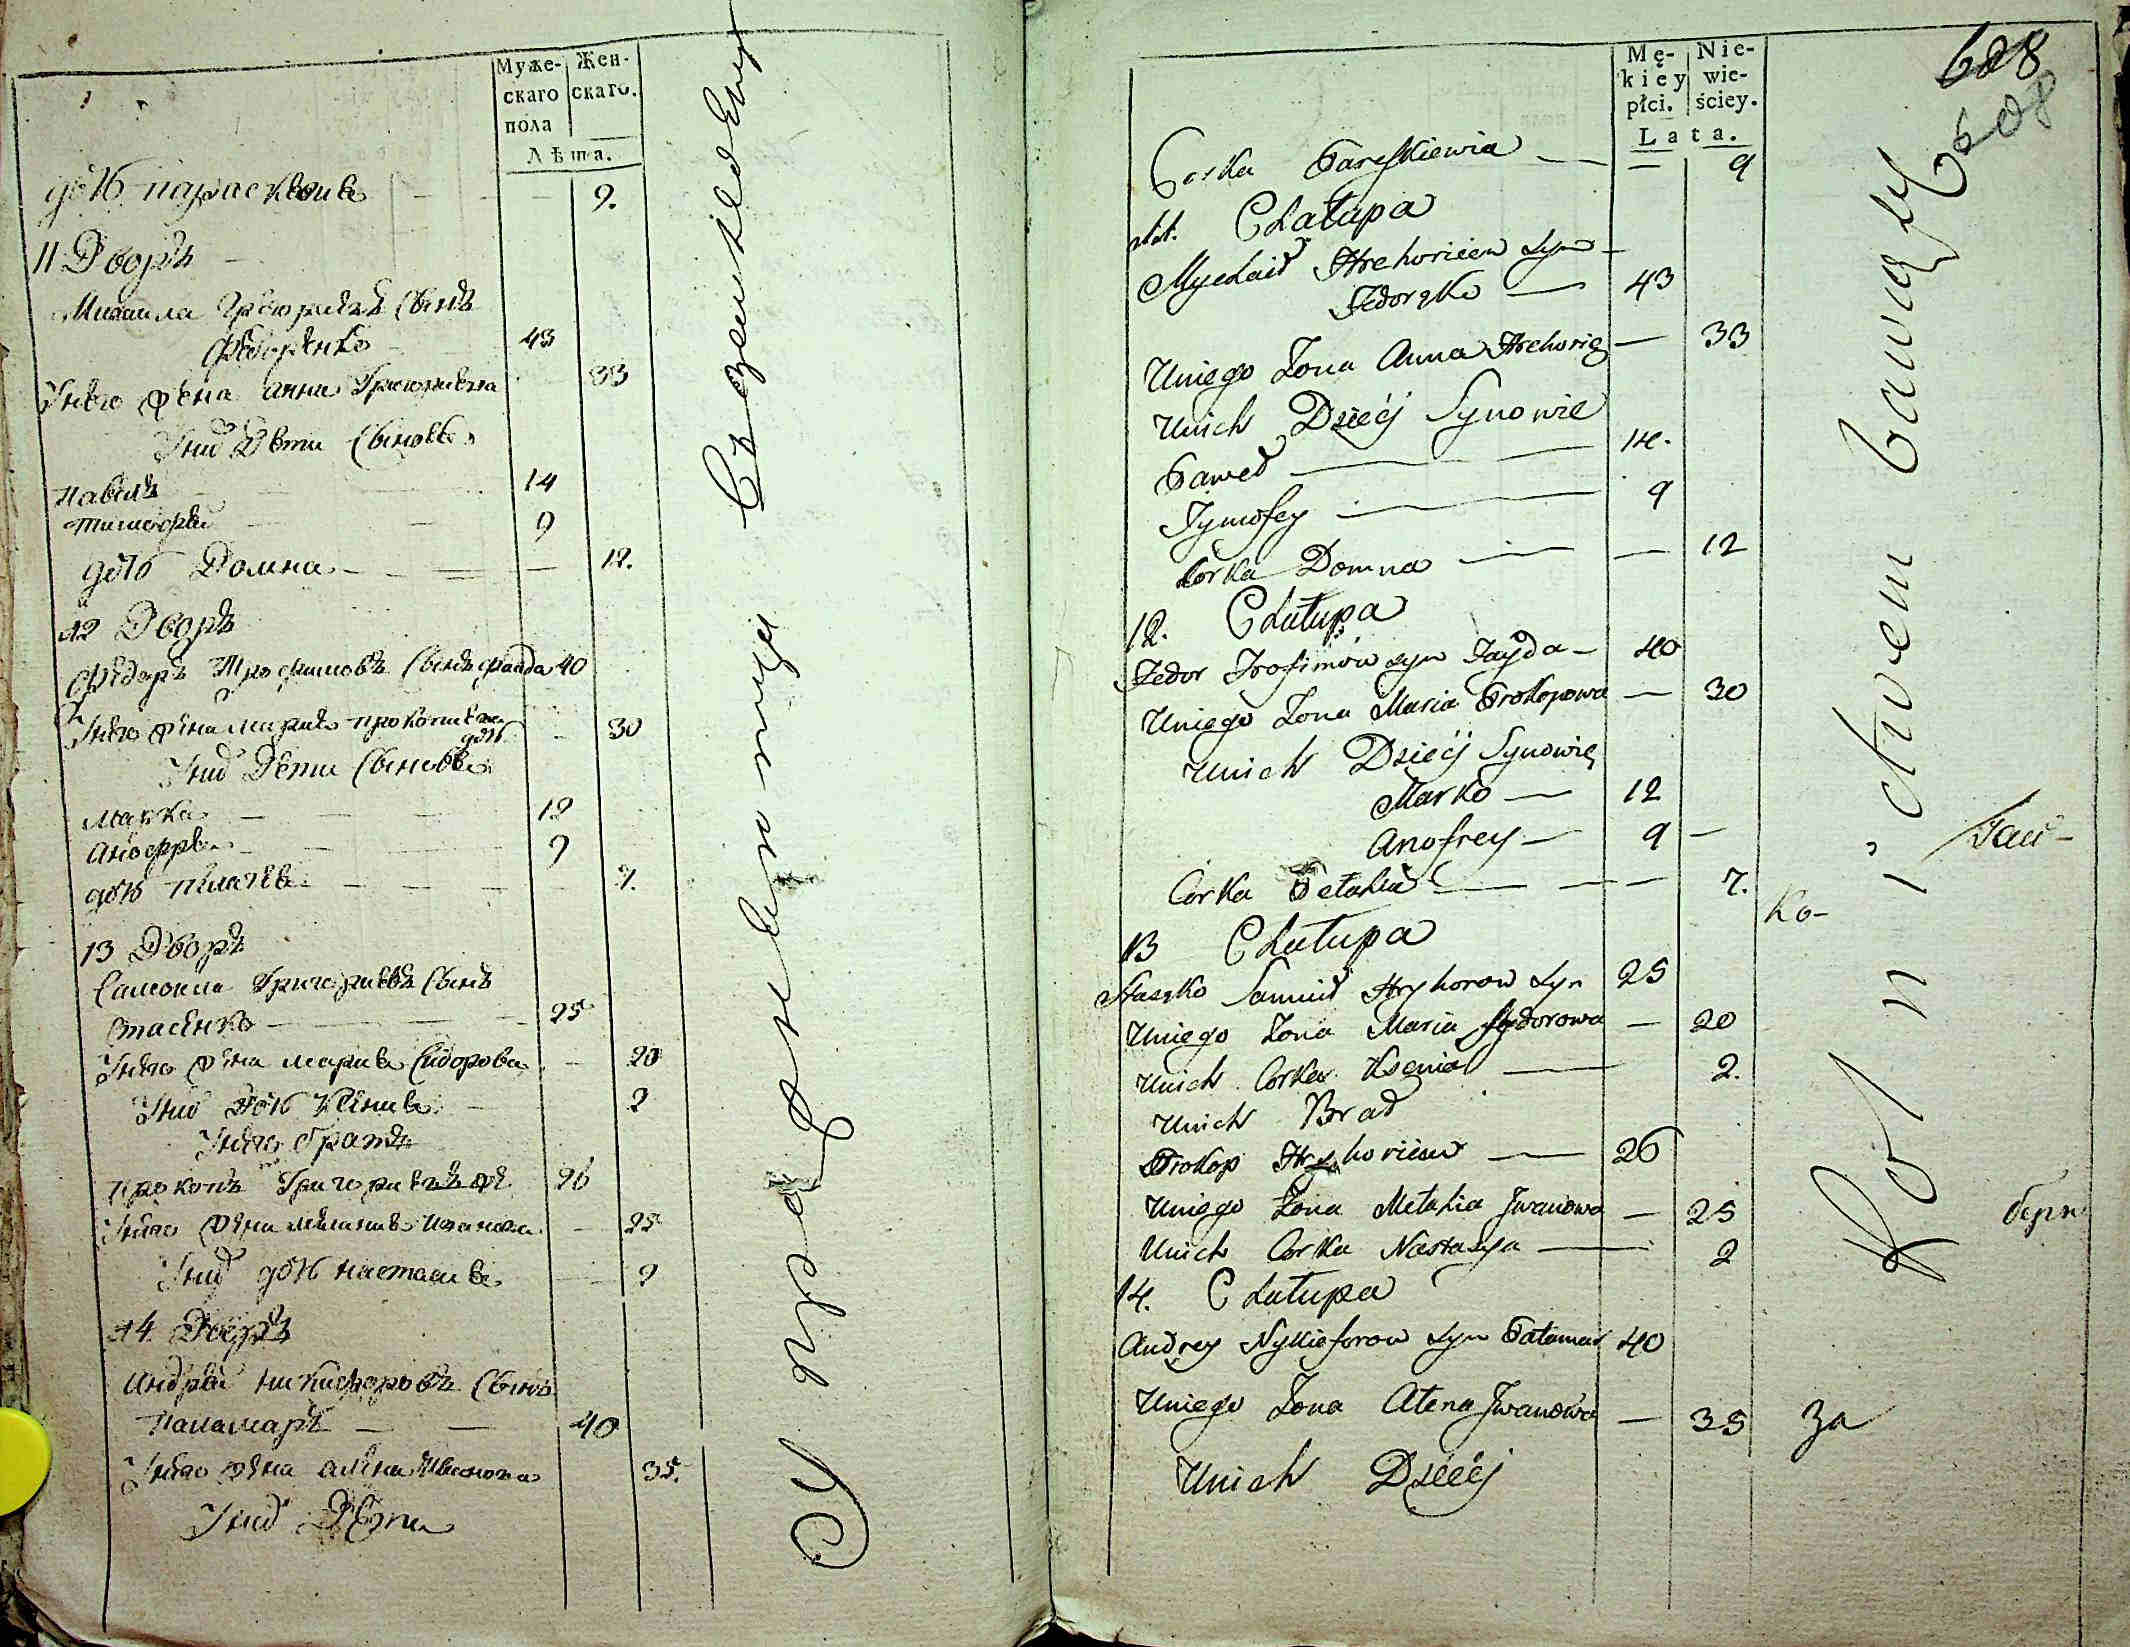 Муже-
скаго
пола
Жен-
скаго.
Лѣта.
дочь параскевия — 9.
11 Дворъ
Михаила Григориевъ Сынъ
Федоренко — 43
Унего жена анна Григориева 33
Уних Дети Сыновья
павелъ — 14
тимофей — 9
дочь Домна — 12.
12 Дворъ
Федоръ Трофимовъ Сынъ 40
Унего жена мария прокопиева
дочь — 30
Уних Дети Сыновья
Марко — 12
Анофрей — 9
дочь пелагея — 7.
13 Дворъ
Самоила Григориевъ Сынъ
Стасенко — 25
Унего жена мария Сидорова — 20
Уних дочь Ксения — 2
Унего братъ
прокопъ Григориевъ 26
Унего жена мелания иванова — 25
Уних дочь настасия — 2
14 Дворъ
Андрей никифоровъ Сынъ
паламаръ — 40
Унего жена алена Иванова 35.
Уних Дети
628
608
Mę-
kiey
płci.
Nie-
wie-
ściey.
Lata.
Corka Paraskiewia — 9
11. Chałupa
Mychaił Hrehoriew syn
Fedorzko — 43
Uniego Żona Anna Hrehorie — 33
Unich Dzieci Synowie
Paweł — 14.
Tymofey — 9
Corka Domna — 12
12. Chałupa
Fedor Trofimow syn Fayda — 40
Uniego Żona Maria Prokopowa — 30
Unich Dzieci Synowie
Marko — 12
Anofrey — 9 —
Corka Pelahia — 7.
13 Chałupa
Staszko Samuił Hryhorow syn 25
Uniego Żona Maria Sydorowa — 20
Unich Corka Ksenia — 2.
Unich Brat
Prokop Hryhoriew — 26
Uniego Żona Melahia Jwanowa — 25
Unich Corka Nastasya — 2
14. Chałupa
Andrey Nykieforow syn Pałamar 40
Uniego Żona Alena Jwanowa — 35
Unich Dzieci
Ко-
за